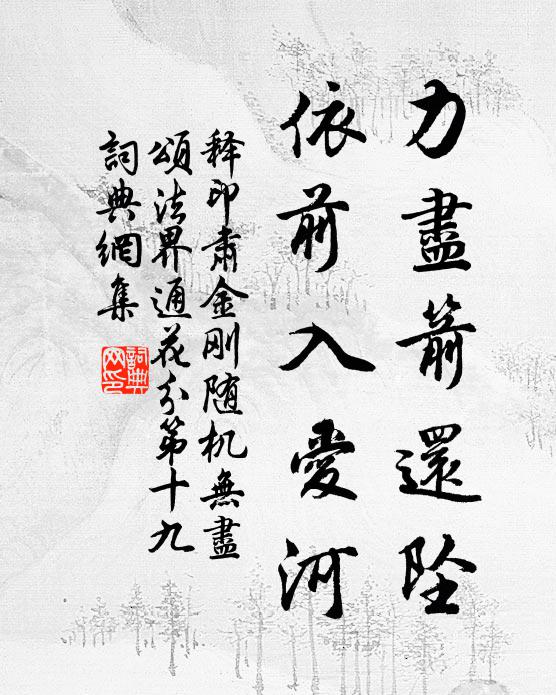 力盡箭還墜
依前入愛河
释印肃金刚随机無盡
頌法界通花分第十九
詞典網集
詞典
网印